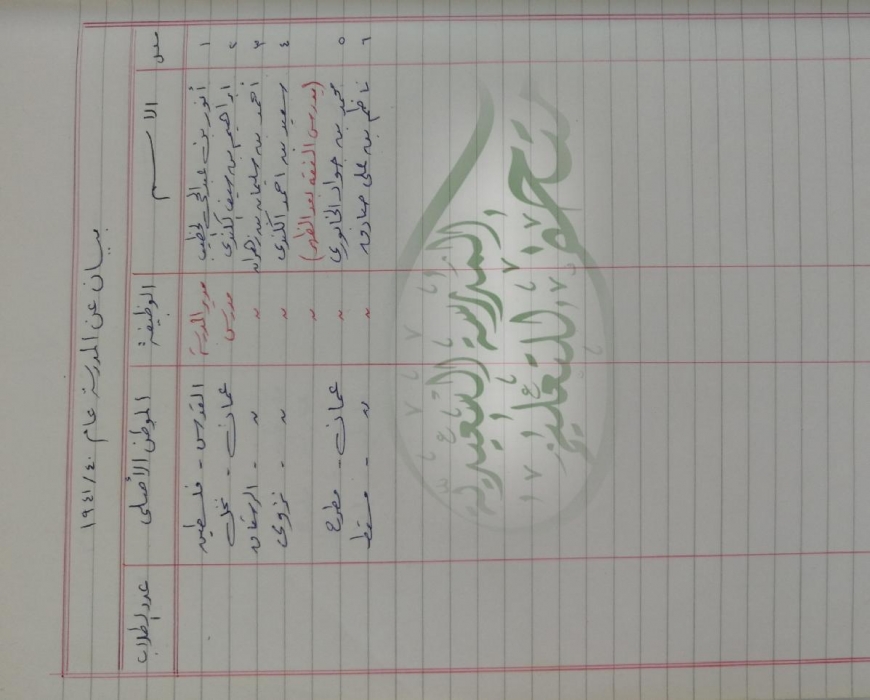 بيان عن المدرسة عام ١٩٤١/٤٠
س الاسم الوظيفة الموطن الأصلي عدد الطلاب
١ أنور بن عبدالحي الخطيب مدير المدرسة القدس - فلسطين
٢ ابراهيم بن سيف الكندي مدرس عمان - نخل
٣ احمد بن سليمان بن زهران " " - الرستاق
٤ سعيد بن احمد الكندي " " - نزوى
(مدرس الفقه بعد الظهر) "
٥ محمد بن جواد الخابوري " عمان - مطرح
٦ ناظم بن علي صادق " " - مسقط
متحف
المدرسة السعيدية
للتعليم